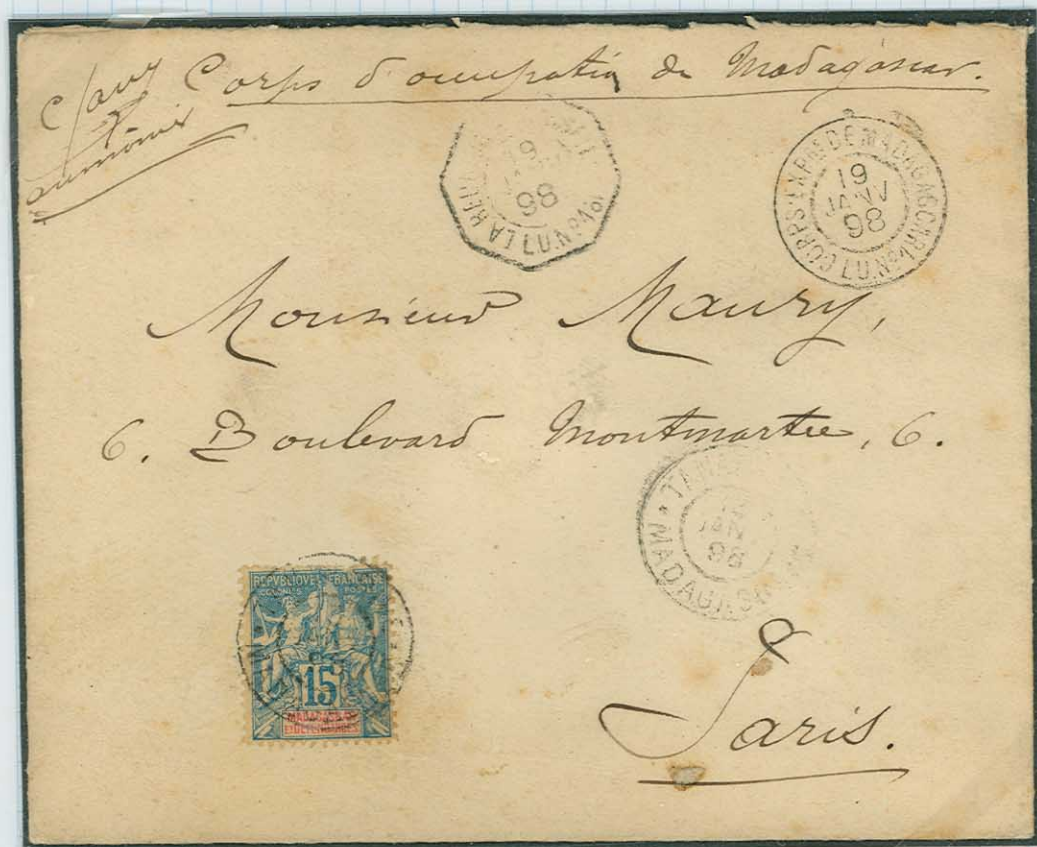 Corps d'occupation de Madagascar.
aumônier
LA RÉU
19
98
L.U.N°
CORPS. EXPRE DE MADAGASCAR
19
JANV
98
L.U.N°
Monsieur Maury,
6. Boulevard Montmartre, 6.
TAMA
JANV
98
MADAGASCAR
REPVBLIQVE FRANÇAISE
COLONIES POSTES
15
MADAGASCAR
ET DÉPENDANCES
Paris.